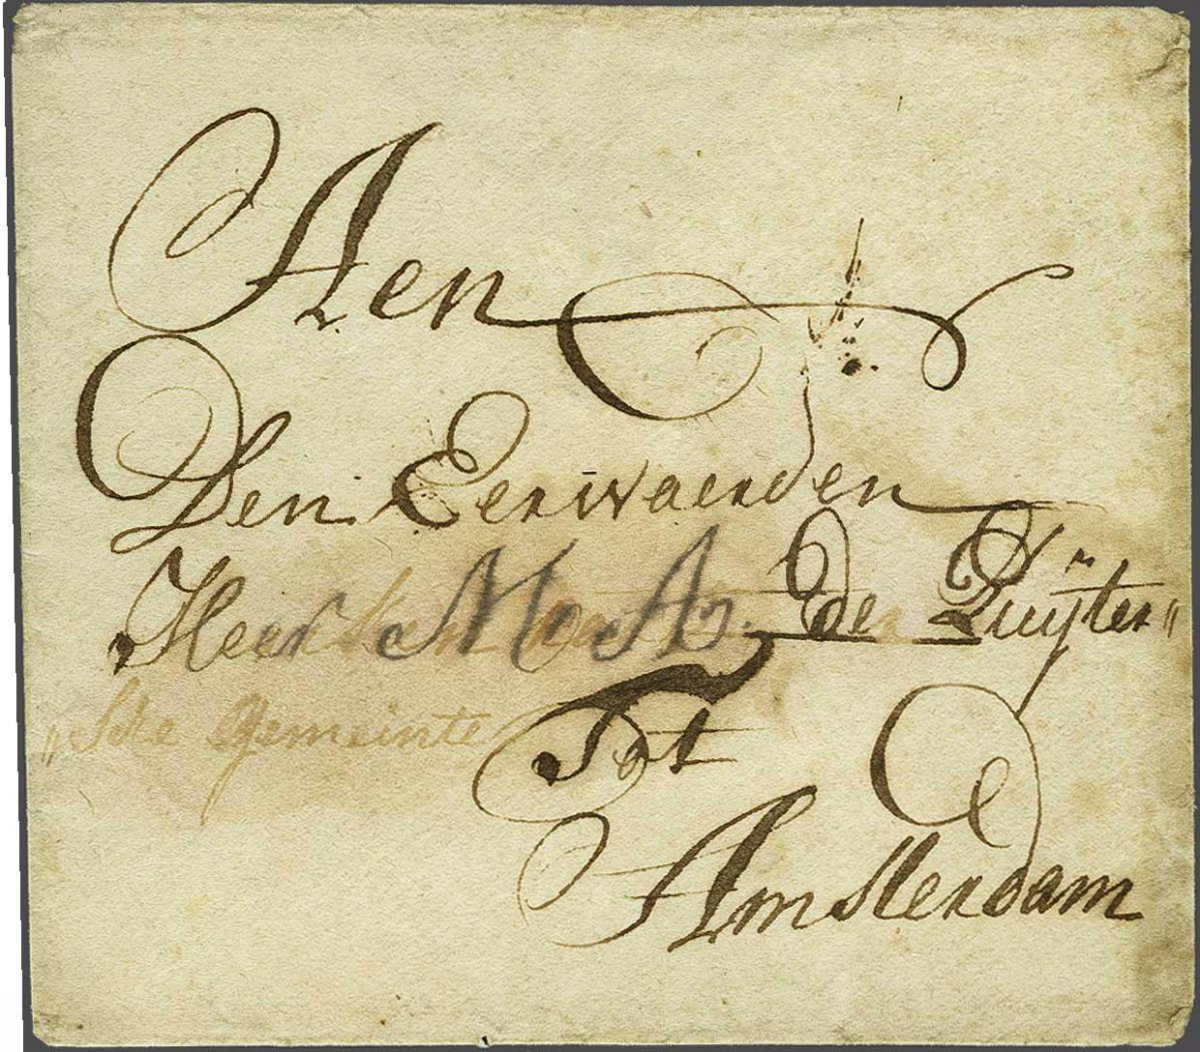 Aen
Den Eerwaerden
Heer M. A. de Ruÿter„
„sche Gemeinte
Tot
Amsterdam